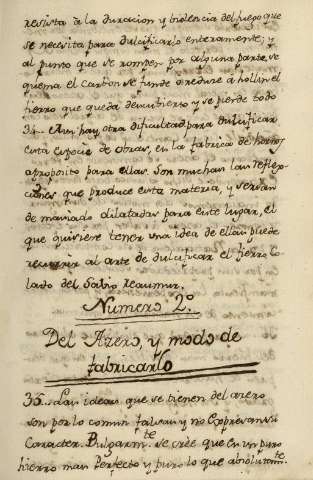 resista à la duracion y violencia del fuego que
se necesita para dulcificarlo enteramente; y
al punto que se rompen por alguna parte, se
quema el carbon se funde o reduce à hollin el
fierro que queda descubierto y se pierde todo
34.. Aun hay otra dificultad para dulcificar
esta especie de obras, en la fabrica de hornos
aproposito para ellas. Son muchas las refle-
ciones que produce esta materia, y serian
de masiado dilatadas para este lugar, el
que quisiere tener una idea de ellas puede
recurrir al arte de dulcificar el fierro co
lado del Sabio reaumur.
Numero 2.º
Del Azero, y modo de
fabricarlo
35.. Las ideas que se tienen del azero
son por lo comun falsas y no Expresan su
Caracter. Bulgarm.te se cree que es un puro
hierro mas Perfecto y puro lo que absolutam.te